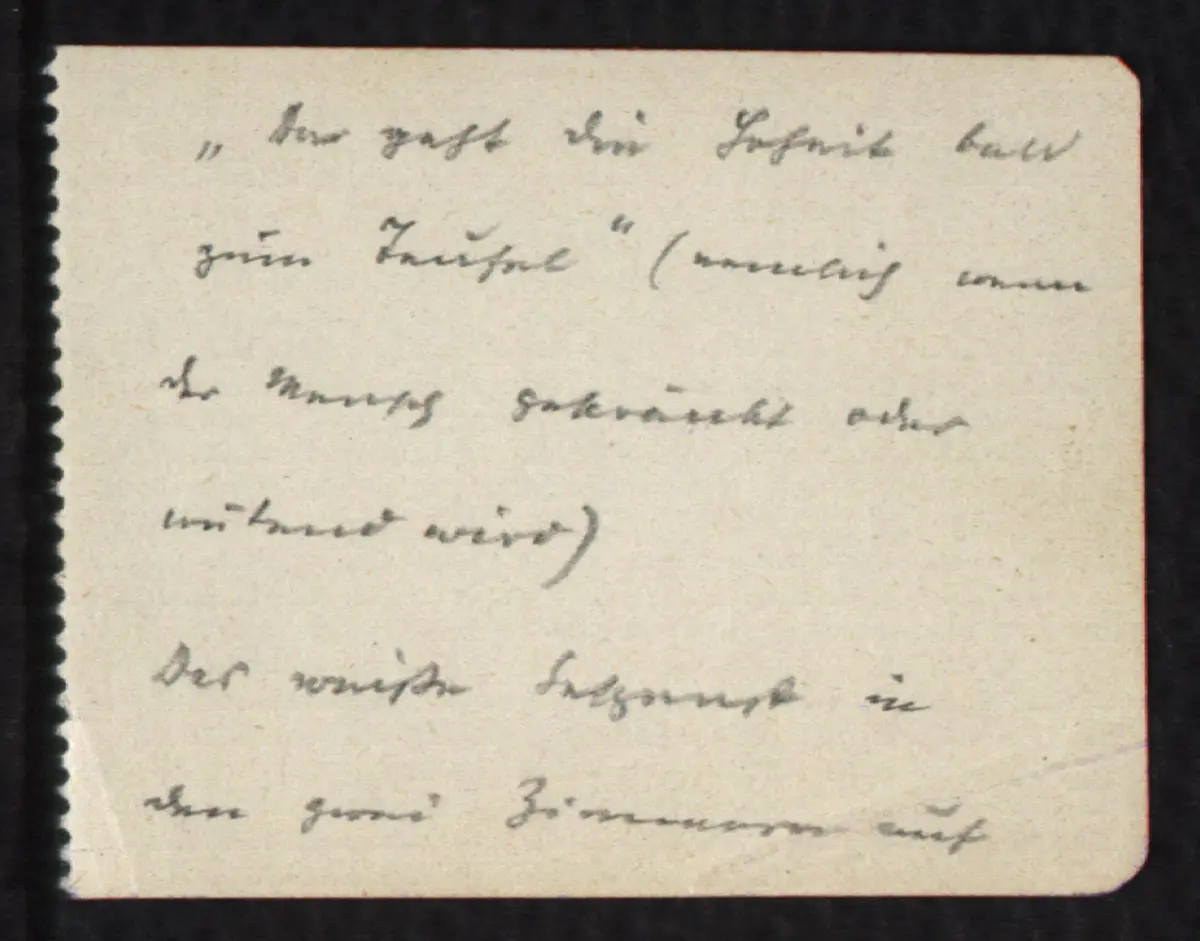 „ geht die Hoheit bald
zum Teufel“ (nemlich wenn
der Mensch gekränkt oder
wütend wird)
Der weiße in
den zwei Zimmern auf